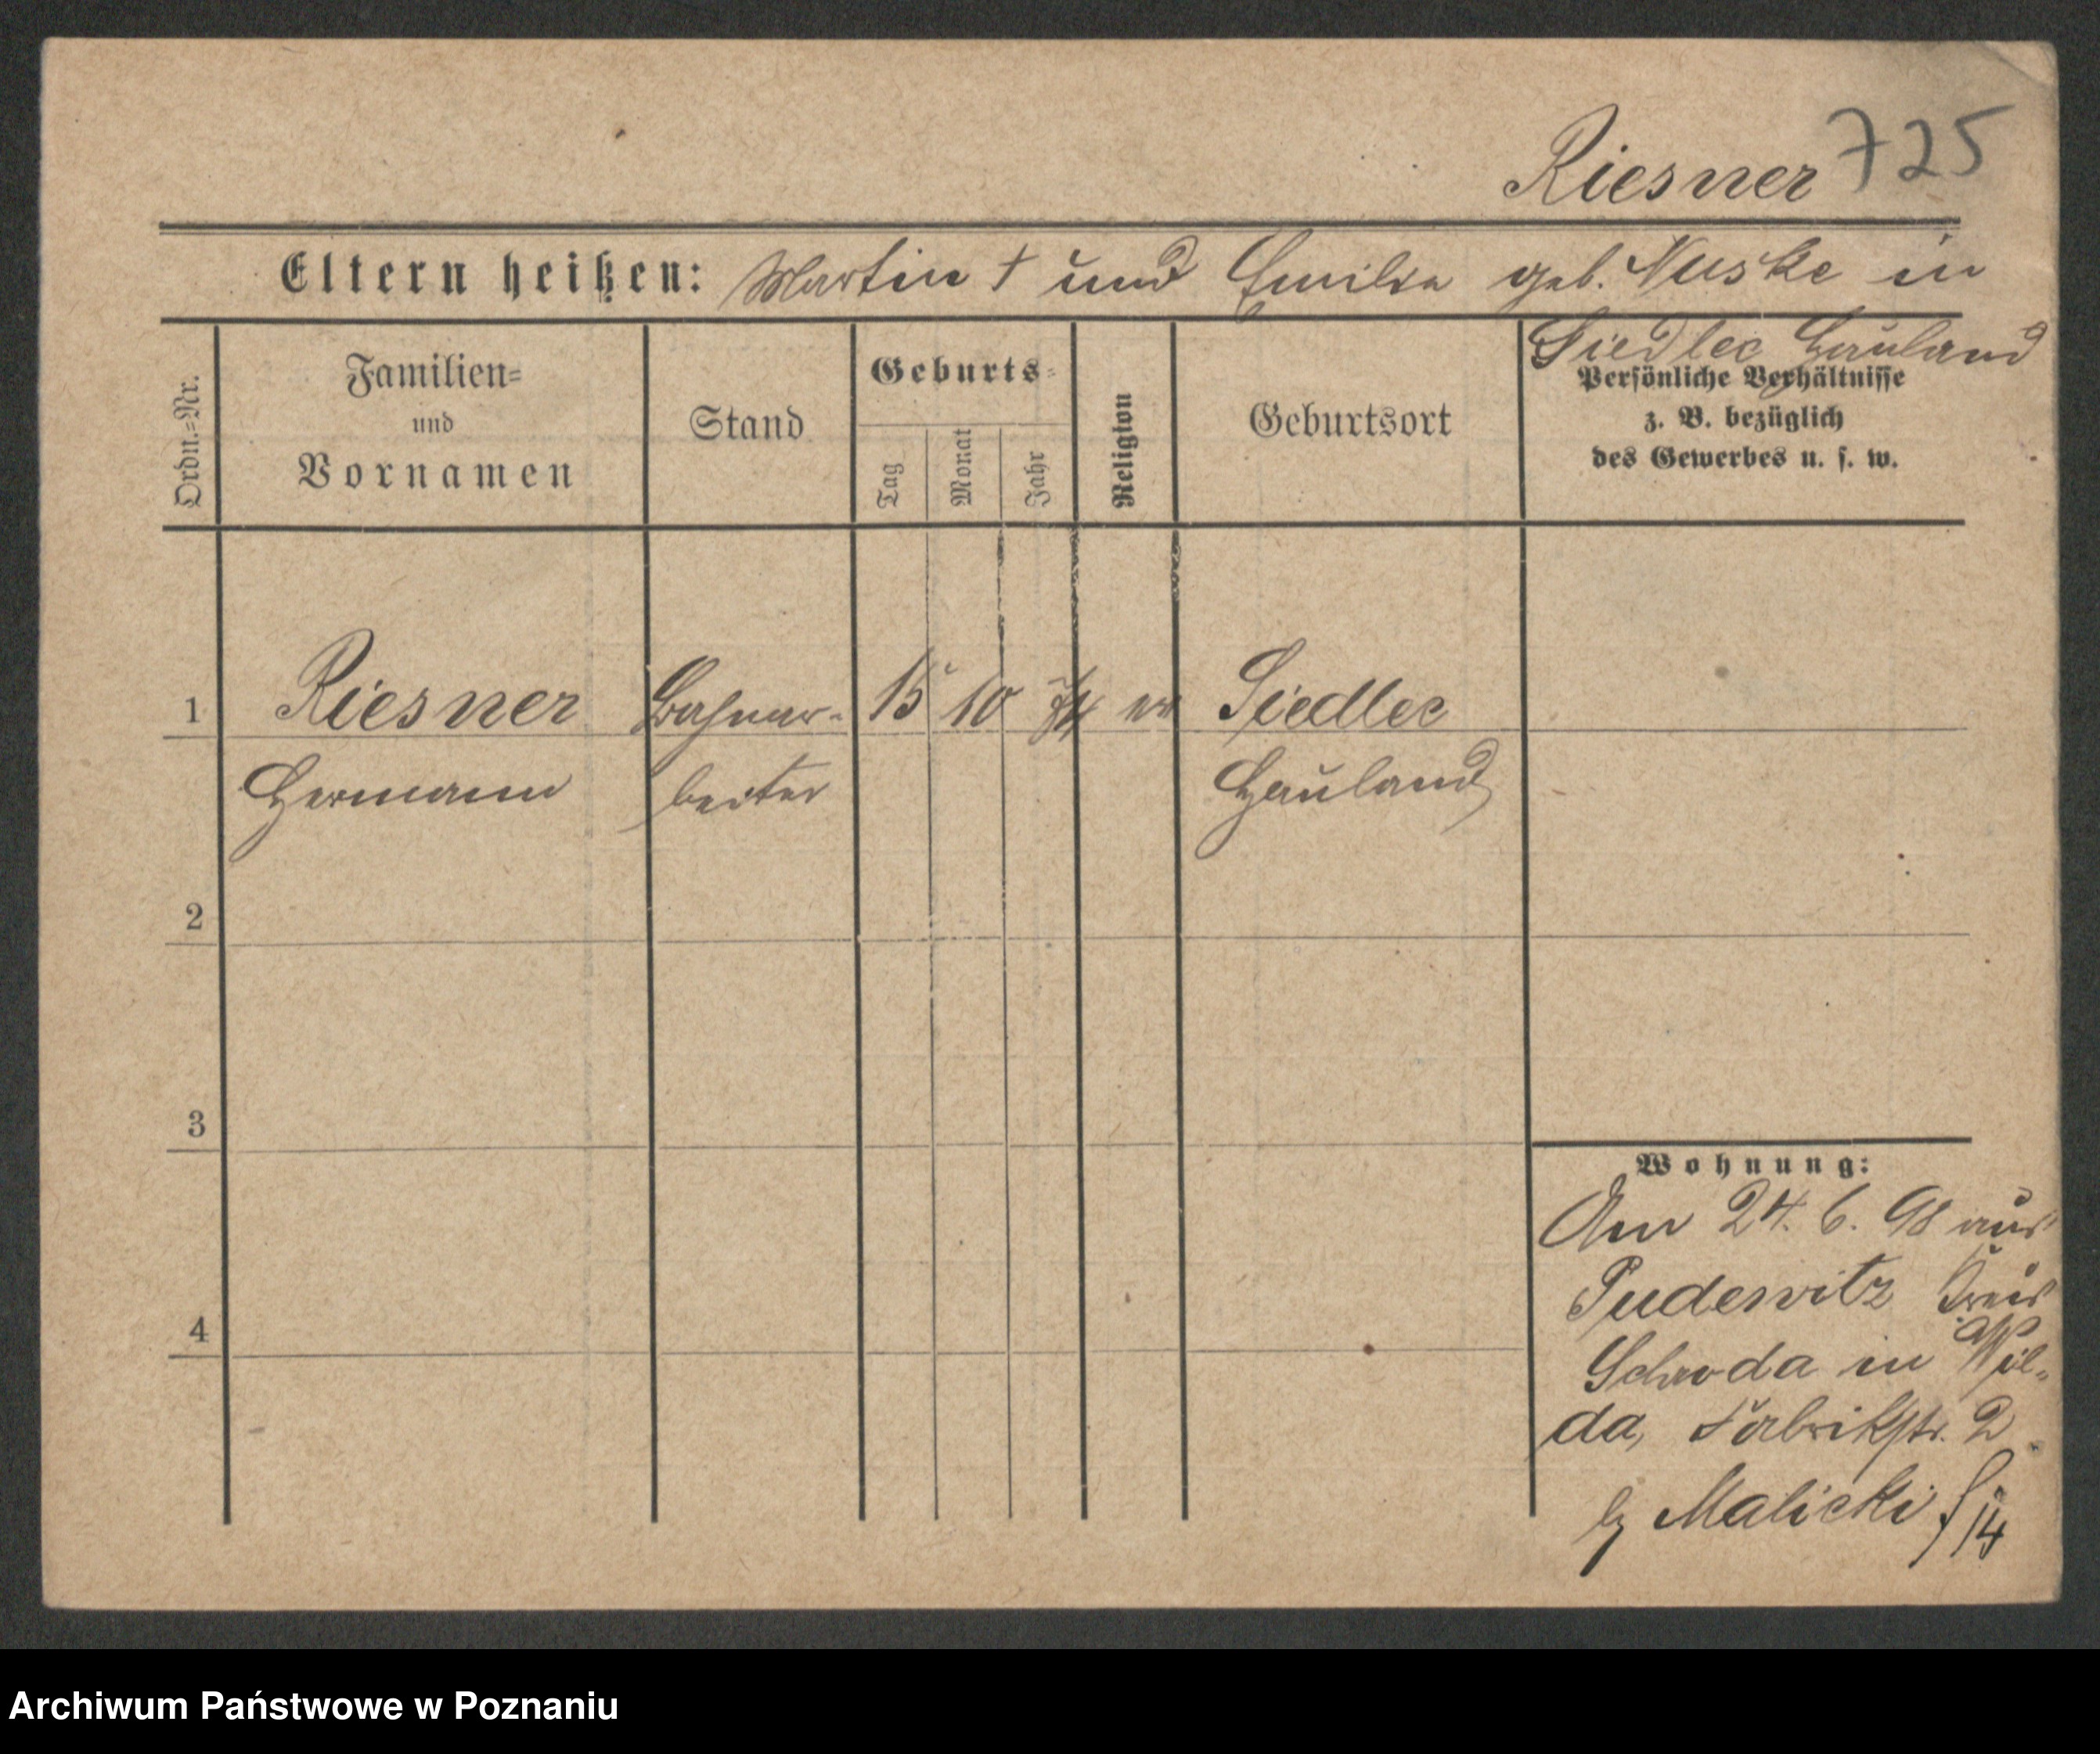 Riesner 725
Eltern heißen: Martin † und Emilie geb. Nuske in
Siedlec Hauland
Ordn.=Nr.
Familien=
und
Vornamen
Stand
Geburts=
Tag
Monat
Jahr
Religion
Geburtsort
Persönliche Verhältnisse
z. B. bezüglich
des Gewerbes u. s. w.
1 Riesner Bahnar- 15 10 74 ev Siedlec
Hermann beiter Hauland
2
3
4
Wohnung:
Am 24. 6. 98 aus
Pudewitz Kreis
Schroda in Wil-
da, Fabrikstr. 2
b/ Malicki
14
Archiwum Państwowe w Poznaniu